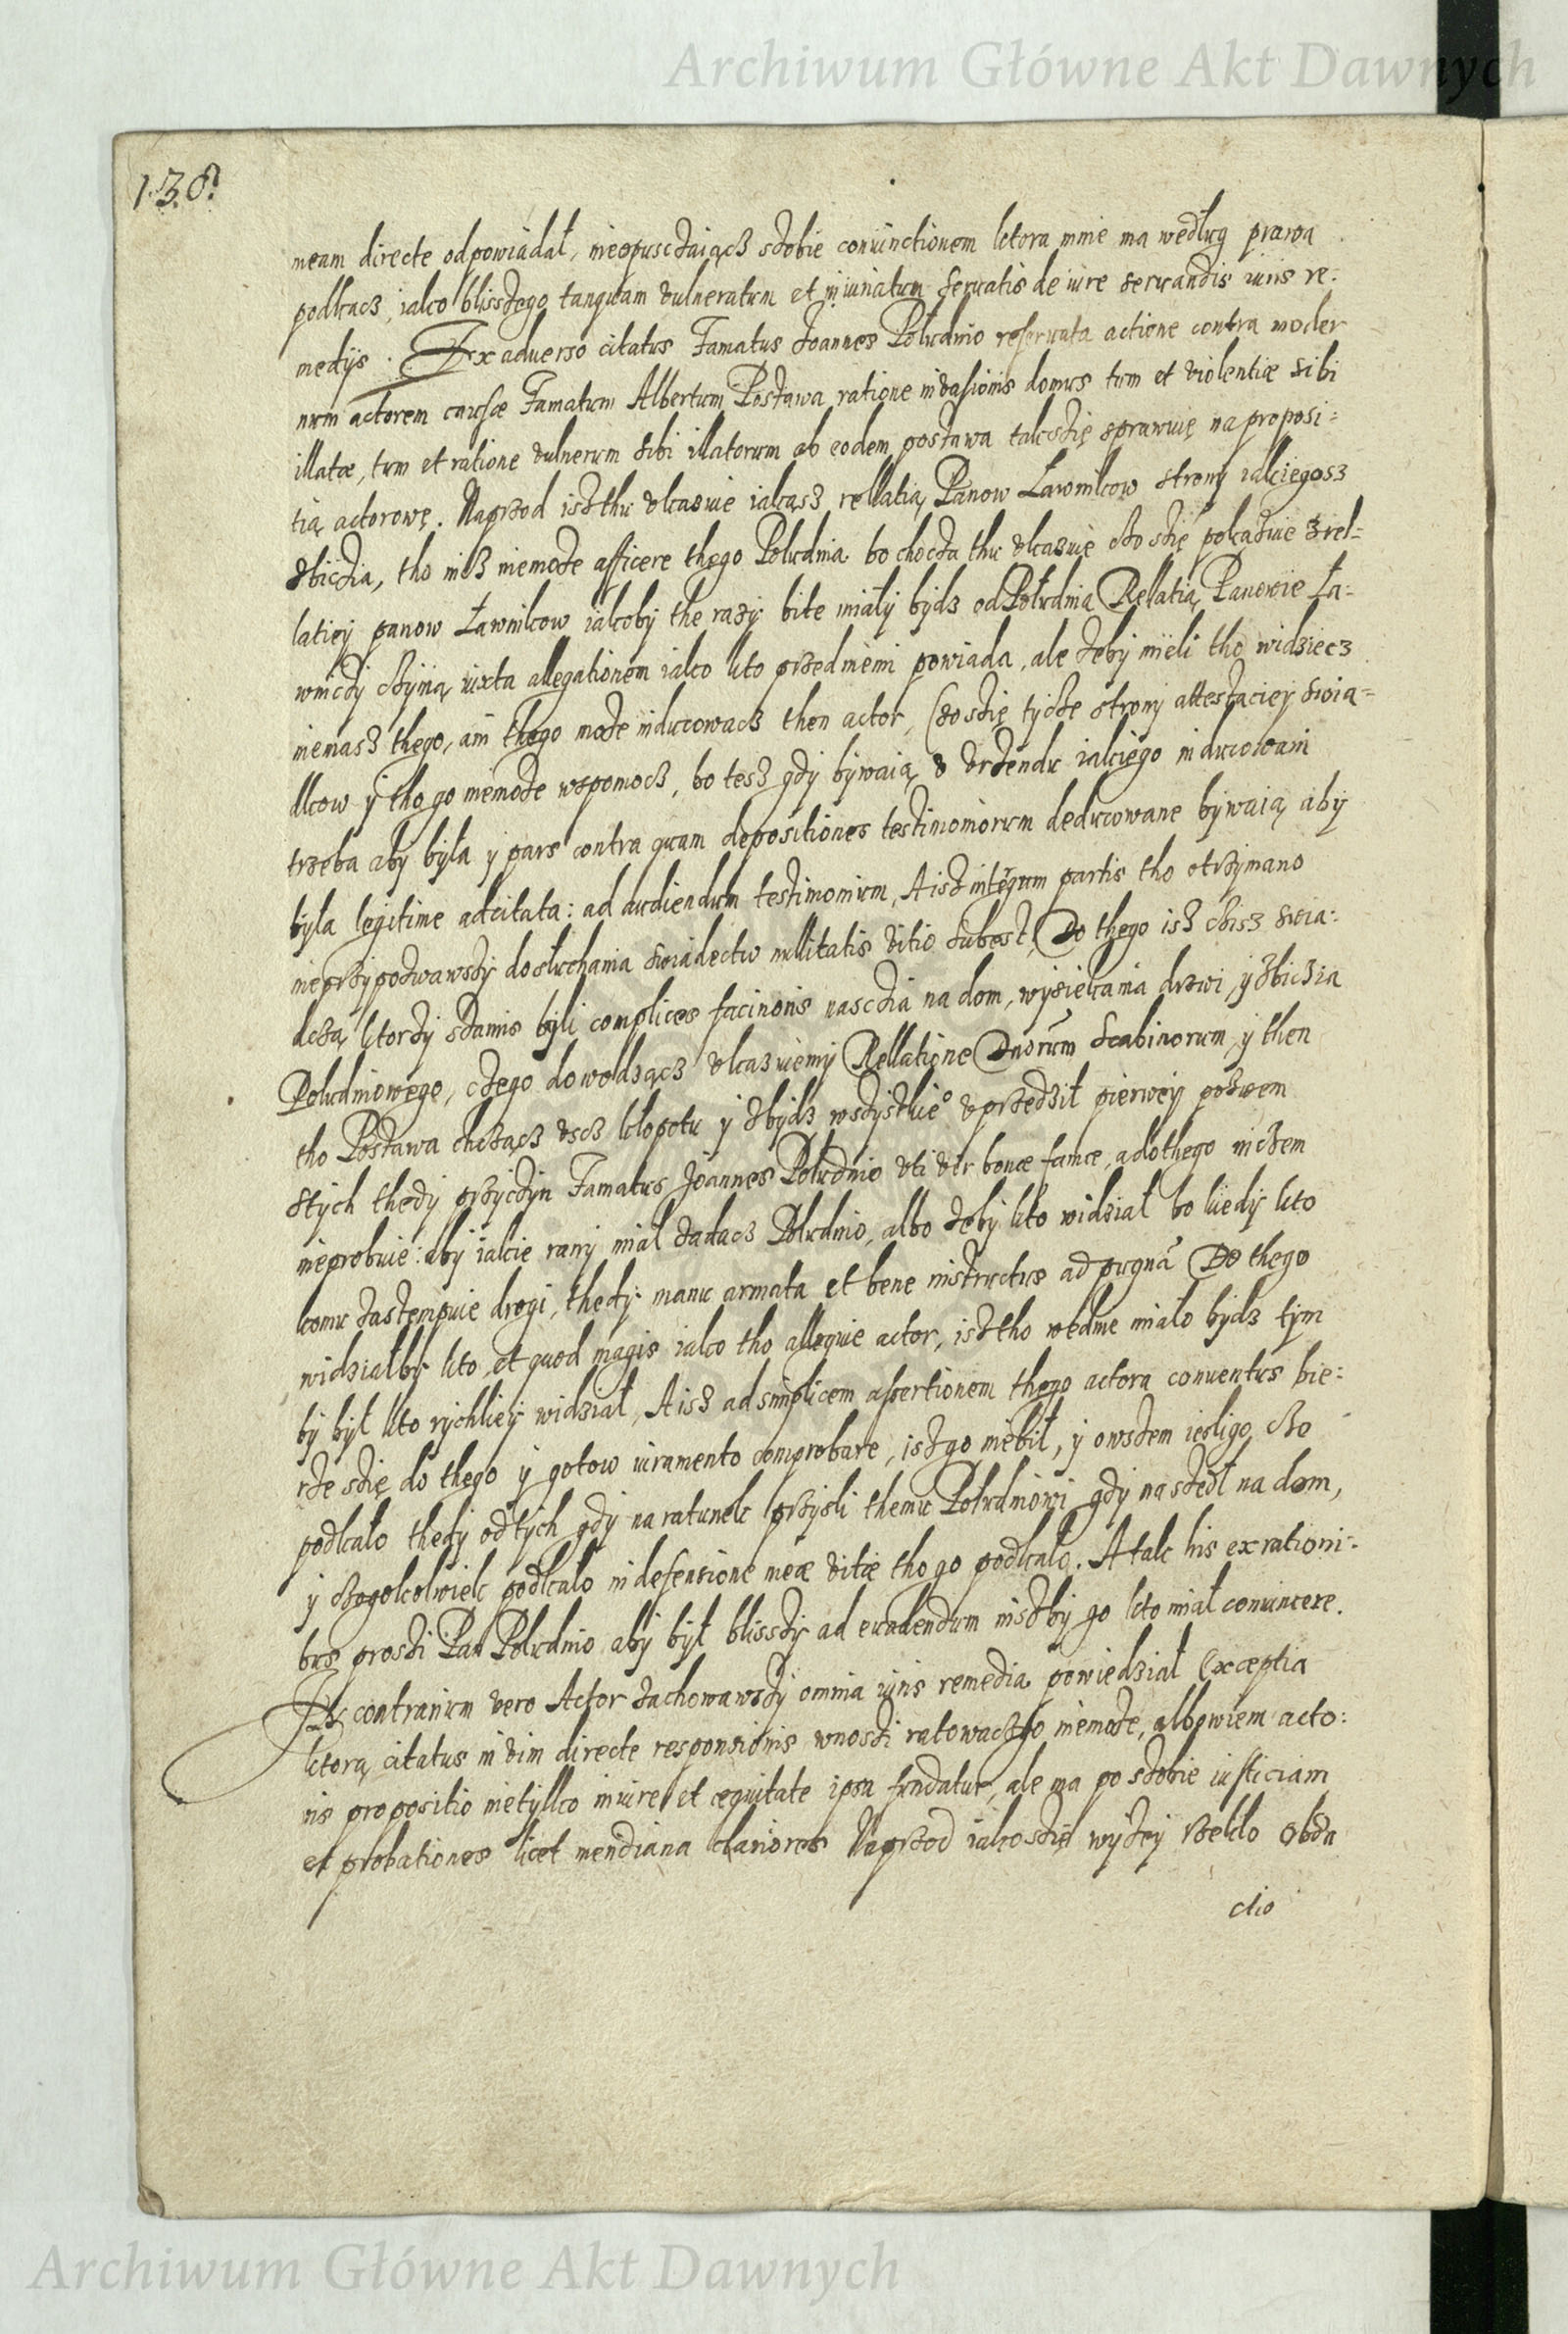 Archiwum Główne Akt Dawnych
138
meam directe odpowiadał, nieopusczaiącz sżobie conuinctionem ktora mnie ma według prawa
podkacz, iako bliszżego tanquam vulneratum et iniuriatum seruatis de iure seruandis iuris re:
medijs. Ex aduerso citatus Famatus Joannes Południo reseruata actione contra moder
num actorem causæ Famatum Albertum Postawa ratione inuasionis domus tum et violentiæ sibi
illatæ, tum et ratione vulnerum sibi illatorum ab eodem postawa takżżię sprawuię na proposi=
tią actorowę. Naprzod iszthu vkazuie iakąsz rellatią Panow Ławnikow strony iakiegosz
zbiczia, tho nisz niemoże afficere thego Południa bo chocża thu vkazuię cżo szię pokazuie z rel=
latiey panow Ławnikow iakoby the razy bite miały bydz od Południa Rellatią Panowie Ła=
wniczy czynią iuxta allegationem iako kto przed niemi powiada, ale żeby mieli tho widziecz
niemasz thego, ani thego może inducowacz then actor, Czo szię tycże strony attestaciey swia=
dkow y tho go niemoże wspomocz, bo tesz gdy bywaią v vrżendu iakiego inducowani
trzeba aby była y pars contra quam depositiones testimoniorum deducowane bywaią aby
była legitime adcitata: ad audiendum testimonium, A isz integrum partis tho otrzymano
nieprzypozwawszy do słuchania swiadectw nullitatis vitio subest, Do thego isz cżisz swia:
dczą ktorży szamis byli complices facinoris nasczia na dom, wysiekania drzwi, y zbiczia
Południowego, czego dowodząc vkazuiemy Rellatione Dnorum Scabinorum y then
tho Postawa chcząc vscz kłopotu y zbydz wszystkieo vprzedził pierwey pozwem
sztych thedy przyczyn Famatus Joannes Południo vti vir bonæ famæ, a do thego niczem
nieprobuie: aby iakie rany miał zadacz Południo, albo żeby kto widział bo kiedy kto
komu zastempuie drogi, thedy manu armata et bene instructus ad pugnã Do thego
widziałby kto, et quod magis iako tho alleguie actor, isz tho wednie miało bydz tym
by był kto rychliey widział, A isz ad simplicem assertionem thego actora conuentus bie:
rże szię do thego y gotow iuramento comprobare, isz go niebił, y owszem iesli go cżo
podkało thedy od tych gdy na ratunek przyśli themu Południowi gdy naszedł na dom,
y czegokolwiek podkało in defensione meæ vitæ tho go podkało. A tak his ex rationi:
bus proszi Pan Południo aby był bliszszy ad euadendum niszby go kto miał conuincere.
In contrarium vero Actor zachowawszy omnia iuris remedia powiedział Exceptia
ktorą citatus in vim directe responsionis wnoszi ratowacz go niemoże, albowiem acto:
ris propositio nietylko in iure et æquitate ipsa fundatur, ale ma po szobie iusticiam
et probationes licet meridiana clariores Naprzod iako szię wyżey rzekło obdu
ctio
Archiwum Główne Akt Dawnych